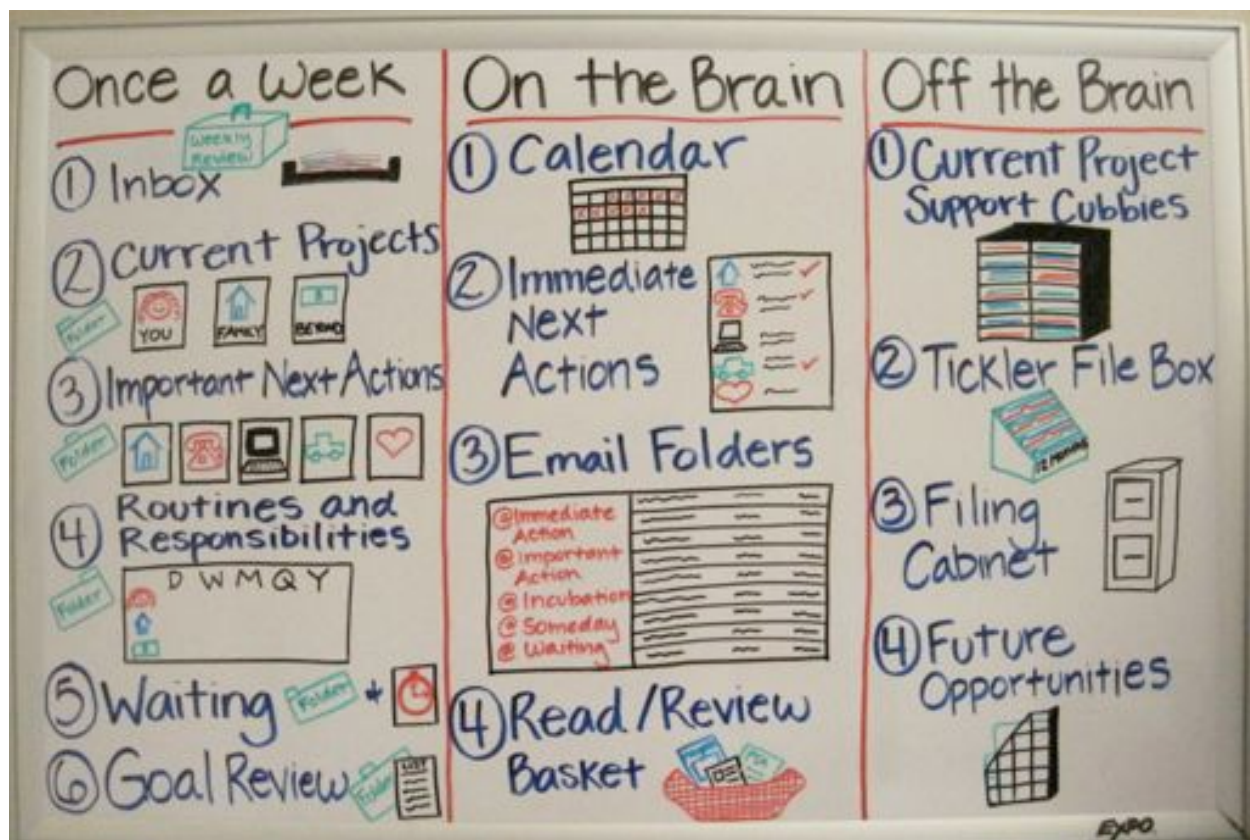 Once a Week
Weekly
Review
1 Inbox
2 Current Projects
Folder
YOU
FAMILY
BEYOND
3 Important Next Actions
Folder
4 Routines and
Responsibilities
Folder
D W M Q Y
5 Waiting
Folder
+
6 Goal Review
Folder
LIST
On the Brain
1 Calendar
2 Immediate
Next
Actions
3 Email Folders
@Immediate
Action
@Important
Action
@Incubation
@Someday
@Waiting
4 Read/Review
Basket
Off the Brain
1 Current Project
Support Cubbies
2 Tickler File Box
12 Months
3 Filing
Cabinet
4 Future
Opportunities
EXPO